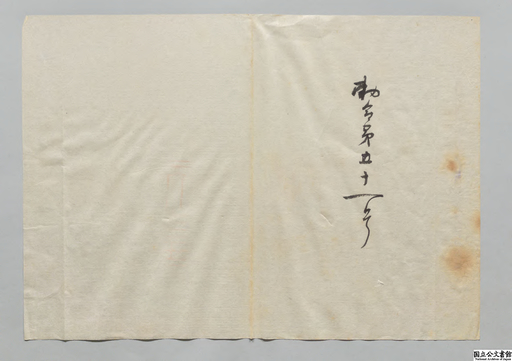 勅令第五十一号
国立公文書館
National Archives of Japan